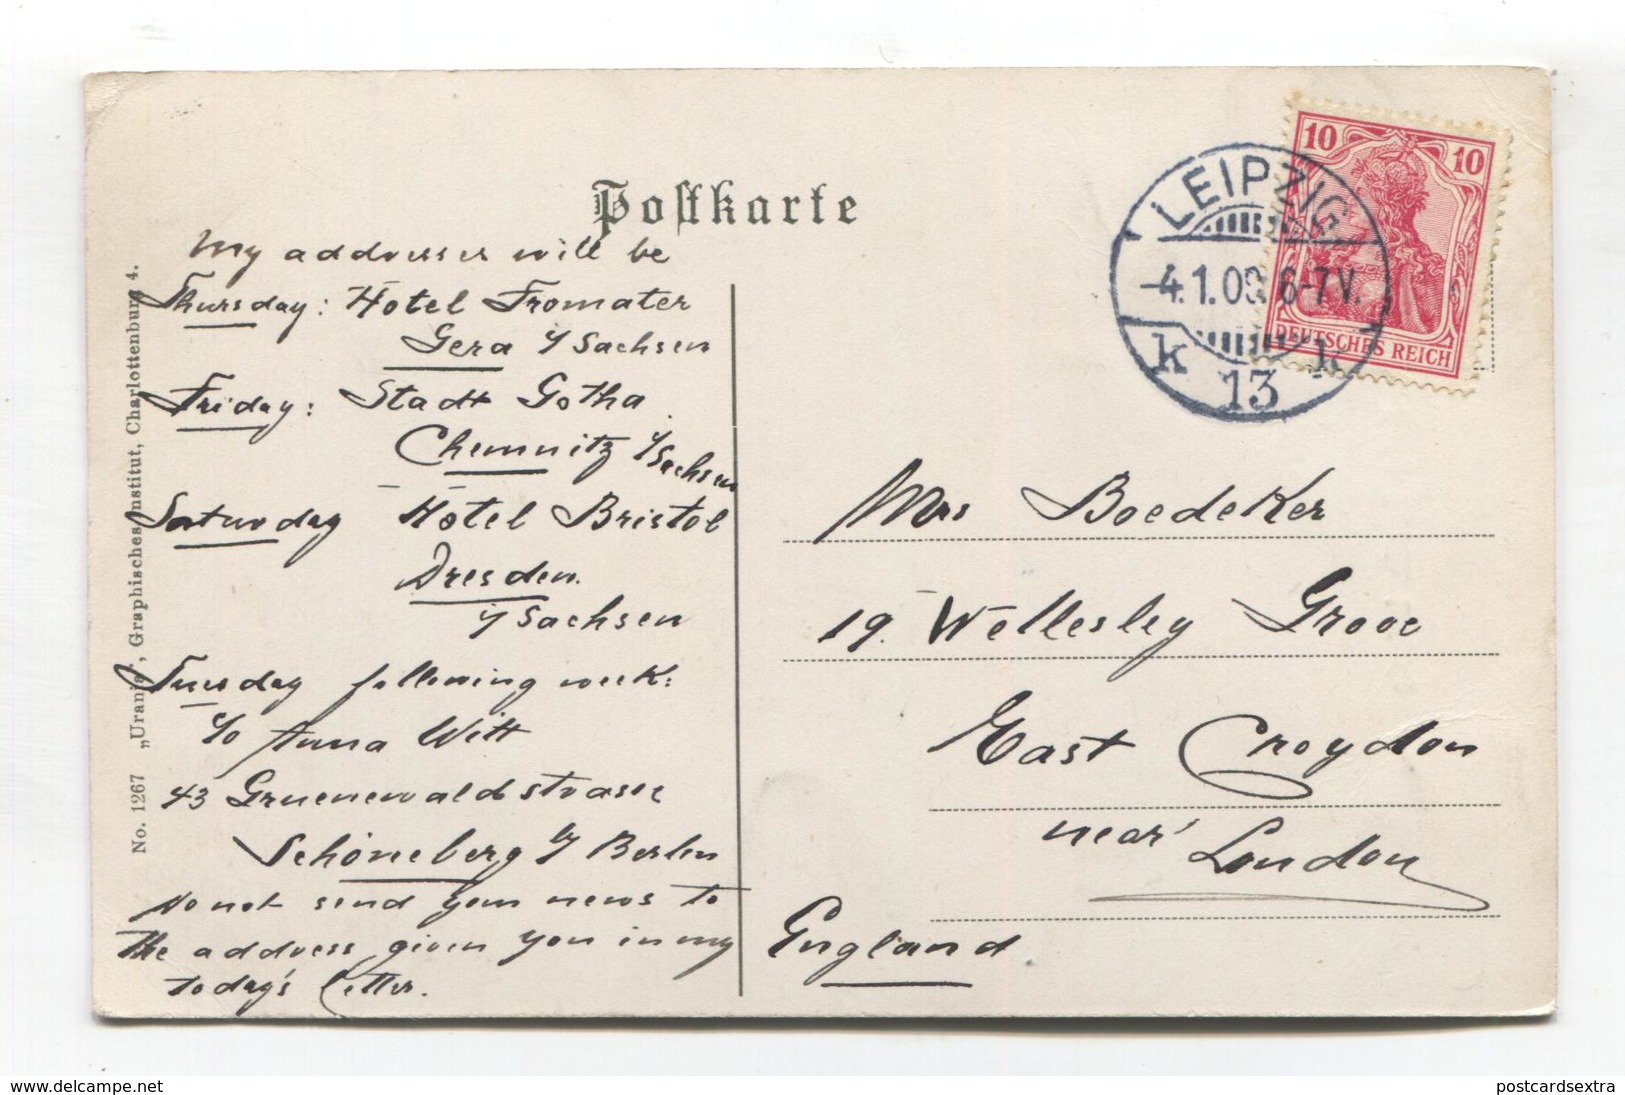 Postkarte
My addresses will be
Thursday: Hotel Fromater
Gera i/ Sachsen
Friday: Stadt Gotha
Chemnitz i/ Sachsen
Saturday Hotel Bristol
Dresden.
i/ Sachsen
Tuesday following week:
c/o Anna Witt
43 Gruenewaldstrasse
Schöneberg b/ Berlin
Do not send your news to
the address given you in my
today's letter.
No. 1267 „Urania“, Graphisches Institut, Charlottenburg 4.
LEIPZIG
-4.1.09. 6-7V.
k 13 k
10 10
DEUTSCHES REICH
Mrs Boedeker
19. Wellesley Grove
East Croydon
near London
England
www.delcampe.net
postcardsextra